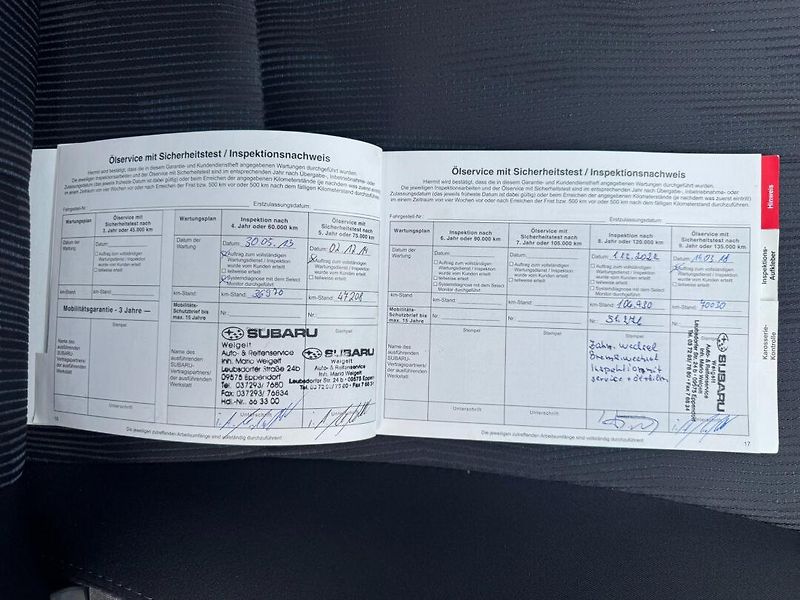 Ölservice mit Sicherheitstest / Inspektionsnachweis
Hiermit wird bestätigt, dass die in diesem Garantie- und Kundendienstheft angegebenen Wartungen durchgeführt wurden.
Die jeweiligen Inspektionsarbeiten und der Ölservice mit Sicherheitstest sind im entsprechenden Jahr nach Übergabe-, Inbetriebnahme- oder
Zulassungsdatum (das jeweils früheste Datum ist dabei gültig) oder beim Erreichen der angegebenen Kilometerstände (je nachdem was zuerst eintritt)
in einem Zeitraum von vier Wochen vor oder nach Erreichen der Frist bzw. 500 km vor oder 500 km nach dem fälligen Kilometerstand durchzuführen.
Fahrgestell-Nr.:
Erstzulassungsdatum:
Wartungsplan
Ölservice mit
Sicherheitstest nach
3. Jahr oder 45.000 km
Datum der
Wartung
Datum:
Auftrag zum vollständigen
Wartungsdienst / Inspektion
wurde vom Kunden erteilt
teilweise erteilt
km-Stand
km-Stand:
Mobilitätsgarantie - 3 Jahre —
Stempel
Name des
ausführenden
SUBARU-
Vertragspartners/
der ausführenden
Werkstatt
Unterschrift
16
Wartungsplan
Inspektion nach
4. Jahr oder 60.000 km
Ölservice mit
Sicherheitstest nach
5. Jahr oder 75.000 km
Datum der
Wartung
Datum: 30.05.13
Datum: 02.12.14
Auftrag zum vollständigen
Wartungsdienst / Inspektion
wurde vom Kunden erteilt
teilweise erteilt
Systemdiagnose mit dem Select
Monitor durchgeführt
km-Stand
km-Stand: 36970
km-Stand: 47201
Mobilitäts-
Schutzbrief bis
max. 15 Jahre
Nr.:
Nr.:
Name des
ausführenden
SUBARU-
Vertragspartners/
der ausführenden
Werkstatt
SUBARU
Weigelt
Auto- & Reifenservice
Inh. Mario Weigelt
Leubsdorfer Straße 24b
09575 Eppendorf
Tel. 037293/ 7680
Fax: 037293/ 76834
Hd.-Nr. 66 33 00
Stempel
SUBARU
Weigelt
Auto- & Reifenservice
Inh. Mario Weigelt
Leubsdorfer Str. 24 b • 09575 Eppendorf
Unterschrift
Unterschrift
Die jeweiligen zutreffenden Arbeitsumfänge sind vollständig durchzuführen!
Ölservice mit Sicherheitstest / Inspektionsnachweis
Hiermit wird bestätigt, dass die in diesem Garantie- und Kundendienstheft angegebenen Wartungen durchgeführt wurden.
Die jeweiligen Inspektionsarbeiten und der Ölservice mit Sicherheitstest sind im entsprechenden Jahr nach Übergabe-, Inbetriebnahme- oder
Zulassungsdatum (das jeweils früheste Datum ist dabei gültig) oder beim Erreichen der angegebenen Kilometerstände (je nachdem was zuerst eintritt)
in einem Zeitraum von vier Wochen vor oder nach Erreichen der Frist bzw. 500 km vor oder 500 km nach dem fälligen Kilometerstand durchzuführen.
Fahrgestell-Nr.:
Erstzulassungsdatum:
Wartungsplan
Inspektion nach
6. Jahr oder 90.000 km
Ölservice mit
Sicherheitstest nach
7. Jahr oder 105.000 km
Inspektion nach
8. Jahr oder 120.000 km
Ölservice mit
Sicherheitstest nach
9. Jahr oder 135.000 km
Datum der
Wartung
Datum:
Datum:
Datum: 1.12.2022
Datum:
Auftrag zum vollständigen
Wartungsdienst / Inspektion
wurde vom Kunden erteilt
teilweise erteilt
Systemdiagnose mit dem Select
Monitor durchgeführt
km-Stand
km-Stand:
km-Stand:
km-Stand: 106.930
km-Stand: 70030
Mobilitäts-
Schutzbrief bis
max. 15 Jahre
Nr.:
Nr.:
Nr.:
Nr.:
Name des
ausführenden
SUBARU-
Vertragspartners/
der ausführenden
Werkstatt
Stempel
Stempel
Stempel
Inspektion mit
SUBARU
Weigelt
Auto- & Reifenservice
Inh. Mario Weigelt
Leubsdorfer Str. 24 b • 09575 Eppendorf
Unterschrift
Unterschrift
Unterschrift
Die jeweiligen zutreffenden Arbeitsumfänge sind vollständig durchzuführen!
17
Hinweis
Inspektions-
Aufkleber
Karosserie-
Kontrolle